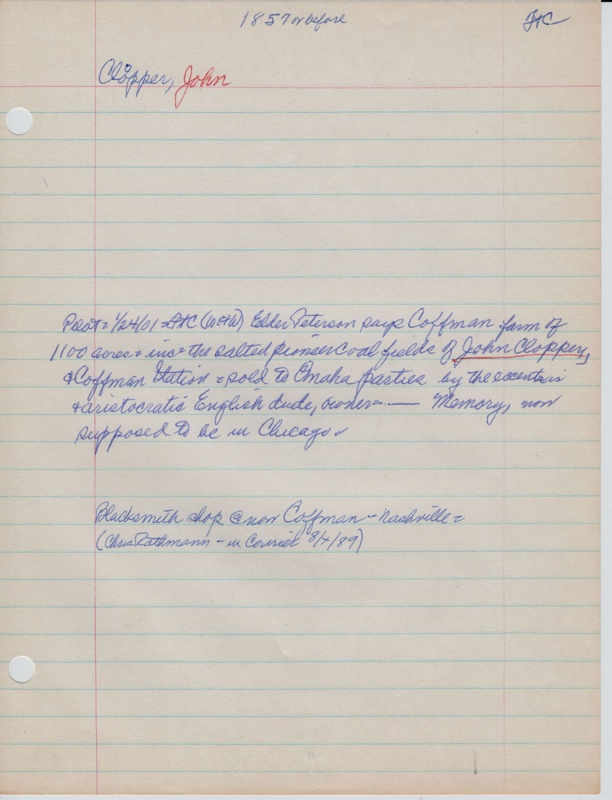 1857 or before
FtC
Clopper, John
Pilot = 1/24/01 = FtC (W&W) Elder Peterson says Coffman farm of
1100 acres = inc = the salted pioneer coal fields of John Clopper,
& Coffman Station = sold to Omaha parties by the eccentric
& aristocratic English dude, owner = — Memory, now
supposed to be in Chicago =
Blacksmith shop @ now Coffman - Nashville =
(Chris Rathmann - in Courier 8/4/89)